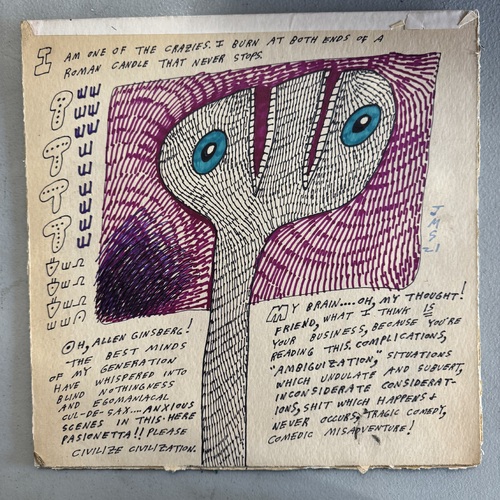 I AM ONE OF THE CRAZIES. I BURN AT BOTH ENDS OF A
ROMAN CANDLE THAT NEVER STOPS.
OH, ALLEN GINSBERG!
THE BEST MINDS
OF MY GENERATION
HAVE WHISPERED INTO
BLIND NOTHINGNESS
AND EGOMANIACAL
CUL-DE-SAX.... ANXIOUS
SCENES IN THIS-HERE
PASIONETTA!! PLEASE
CIVILIZE CIVILIZATION.
MY BRAIN.... OH, MY THOUGHT!
FRIEND, WHAT I THINK IS
YOUR BUSINESS, BECAUSE YOU'RE
READING THIS. COMPLICATIONS,
"AMBIGUIZATION," SITUATIONS
WHICH UNDULATE AND SUBVERT,
INCONSIDERATE CONSIDERAT-
IONS, SHIT WHICH HAPPENS +
NEVER OCCURS, TRAGIC COMEDY,
COMEDIC MISADVENTURE!